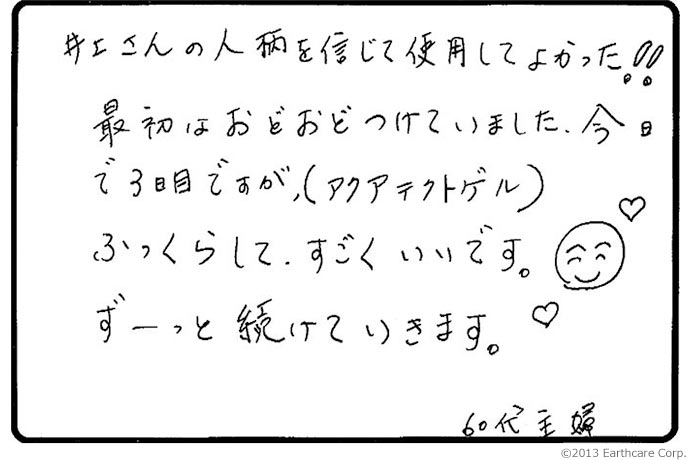 井上さんの人柄を信じて使用してよかった!!
最初はおどおどつけていました、今日
で3日目ですが、(アクアテクトゲル)
ふっくらして、すごくいいです。
ずーっと続けていきます。
60代主婦
©2013 Earthcare Corp.